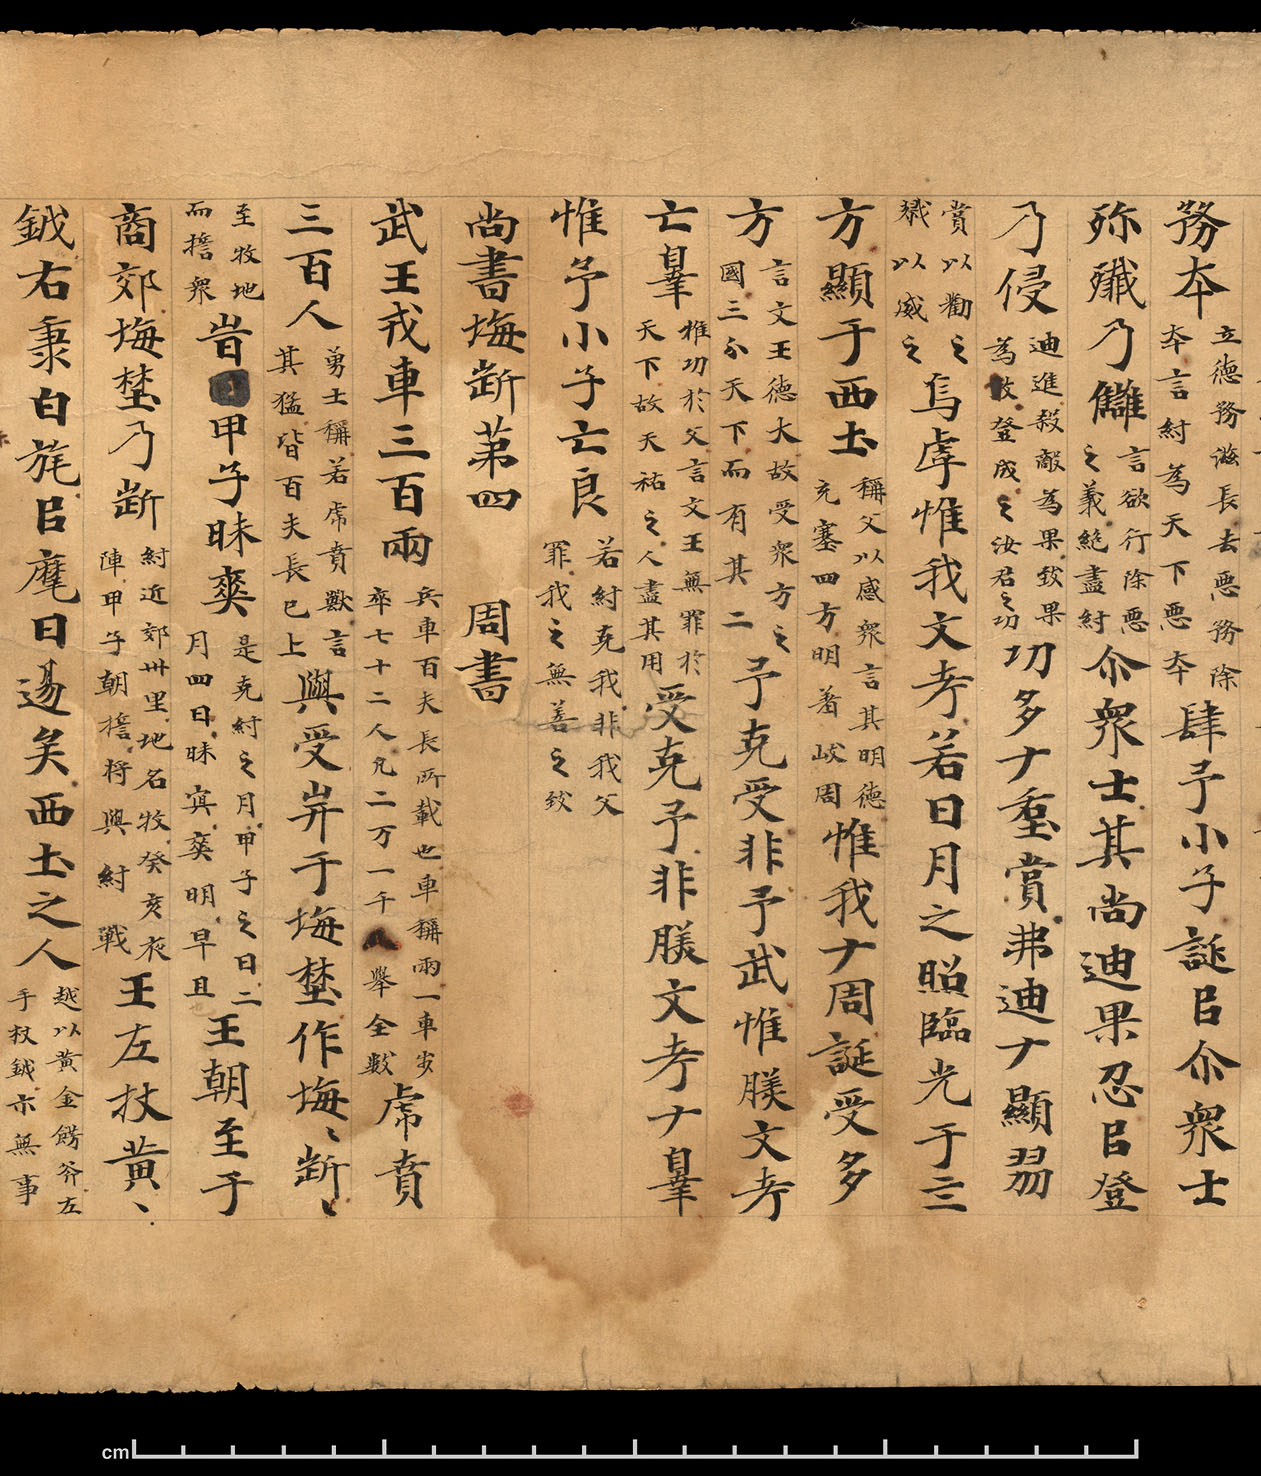 務夲立德務滋長去惡務除夲言紂為天下惡夲肆予小子誕㠯尒衆士
殄殲乃讎言欲行除惡之義絶盡紂尒衆士其尚迪果忍㠯登
乃侵迪進殺敵為果致果為毅登成之汝君之功功多𠂇𡍴賞弗迪𠂇顯
賞以勸之戮以威之烏虖惟我文考若日月之照臨光于亖
方顯于西土稱父以感衆言其明德充塞四方明著岐周惟我𠂇周誕受多
方言文王德大故受衆方之國三分天下而有其二予克受非予武惟朕文考
亡辠推功於父言文王無罪於天下故天祐之人盡其用受克予非朕文考𠂇辠
惟予小子亡良若紂克我非我父罪我之無善之致
尚書坶斷苐四　周書
武王戎車三百兩兵車百夫長所載也車稱兩一車步卒七十二人凡二万一千舉全數虎賁
三百人勇士稱若虎賁獸言其猛皆百夫長已上與受弁于坶埜作坶〻斷〻
至牧地而擔衆旹甲子昧爽是克紂之月甲子之日二月四日昧冥爽明早旦王朝至于
商郊坶埜乃斷紂近郊卅里地名牧癸亥夜陣甲子朝擔将與紂戰王左杖黃〻
鉞右秉白旄㠯麾曰逷矣西土之人越以黃金餝斧左手杖鉞亦無事